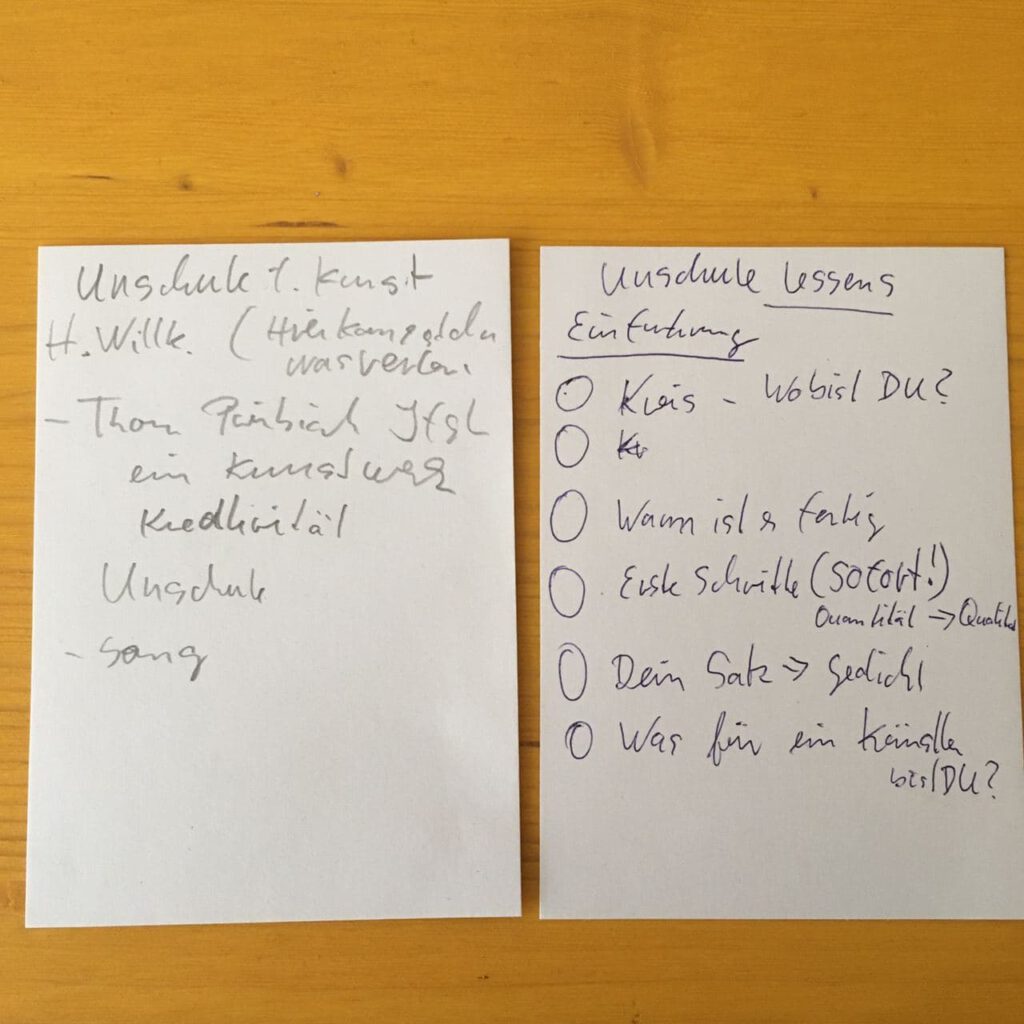 Unschule f. Kunst
H. Willk. (Hier kannst du
was verler.
- Thom
ein Kunstwerk
Kreativität
Unschule
- Song
Unschule Lessens
Einführung
Kreis - Wo bist DU?
Kr
Wann ist es fertig
Erste Schritte (Sofort!)
Quantität -> Qualität
Dein Satz => Gedicht
Was für ein Künstler
bist DU?